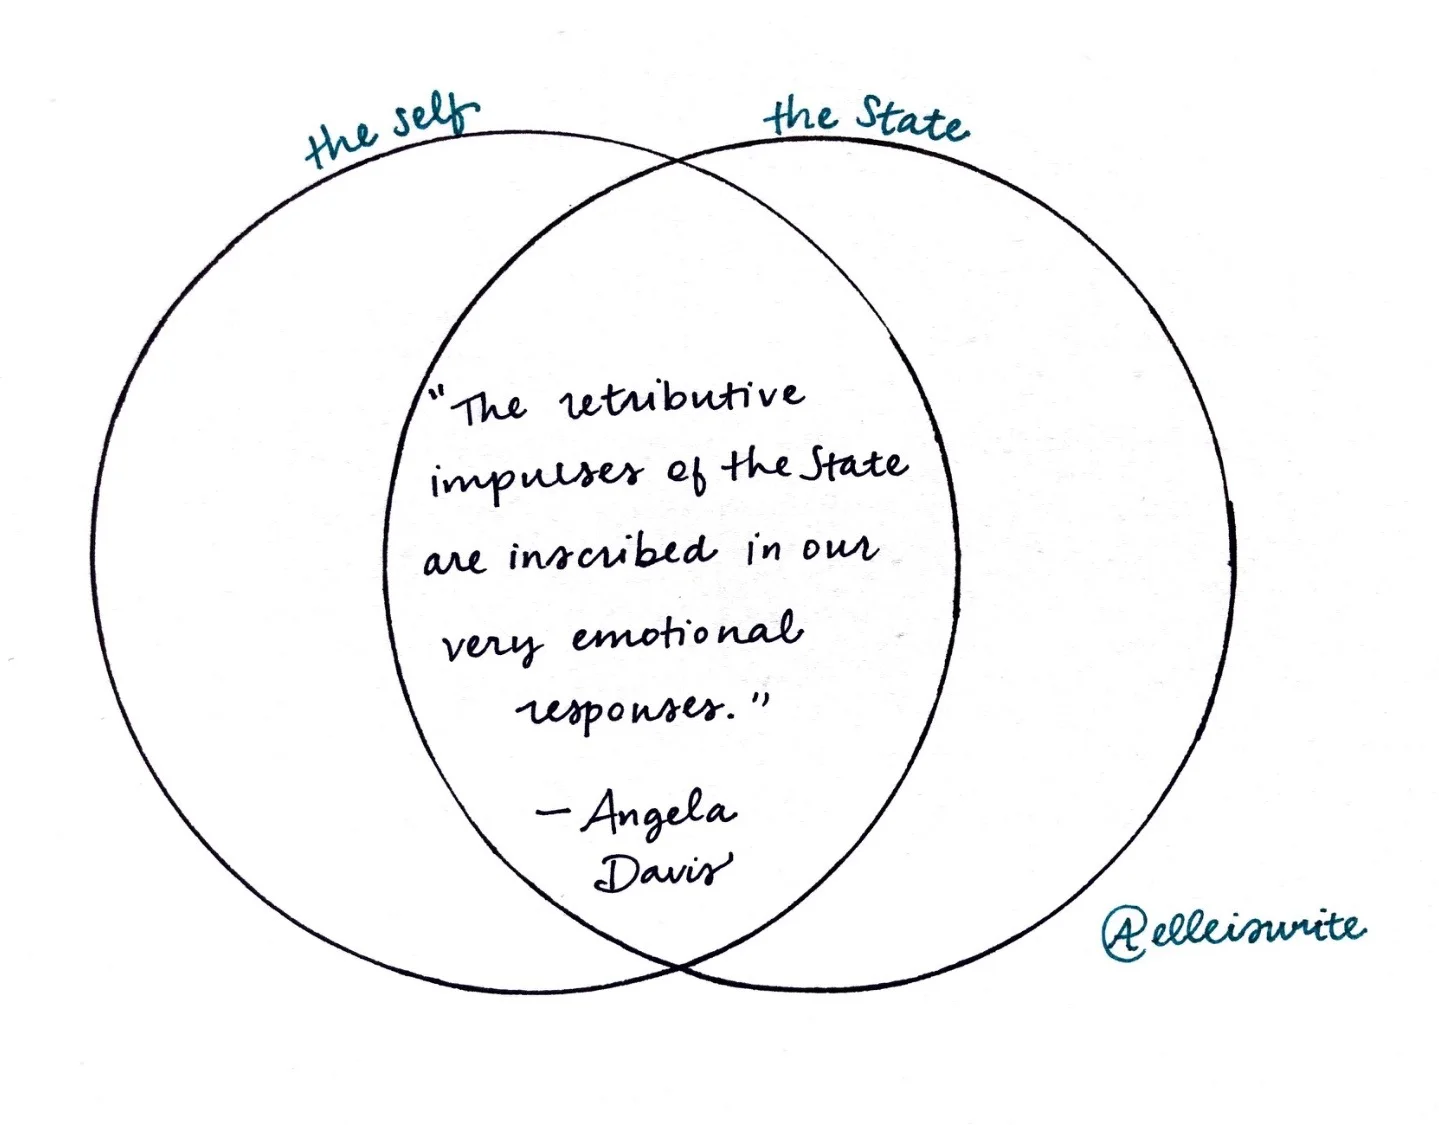 the self
the State
"The retributive
impulses of the State
are inscribed in our
very emotional
responses."
— Angela
Davis
@elleiswrite